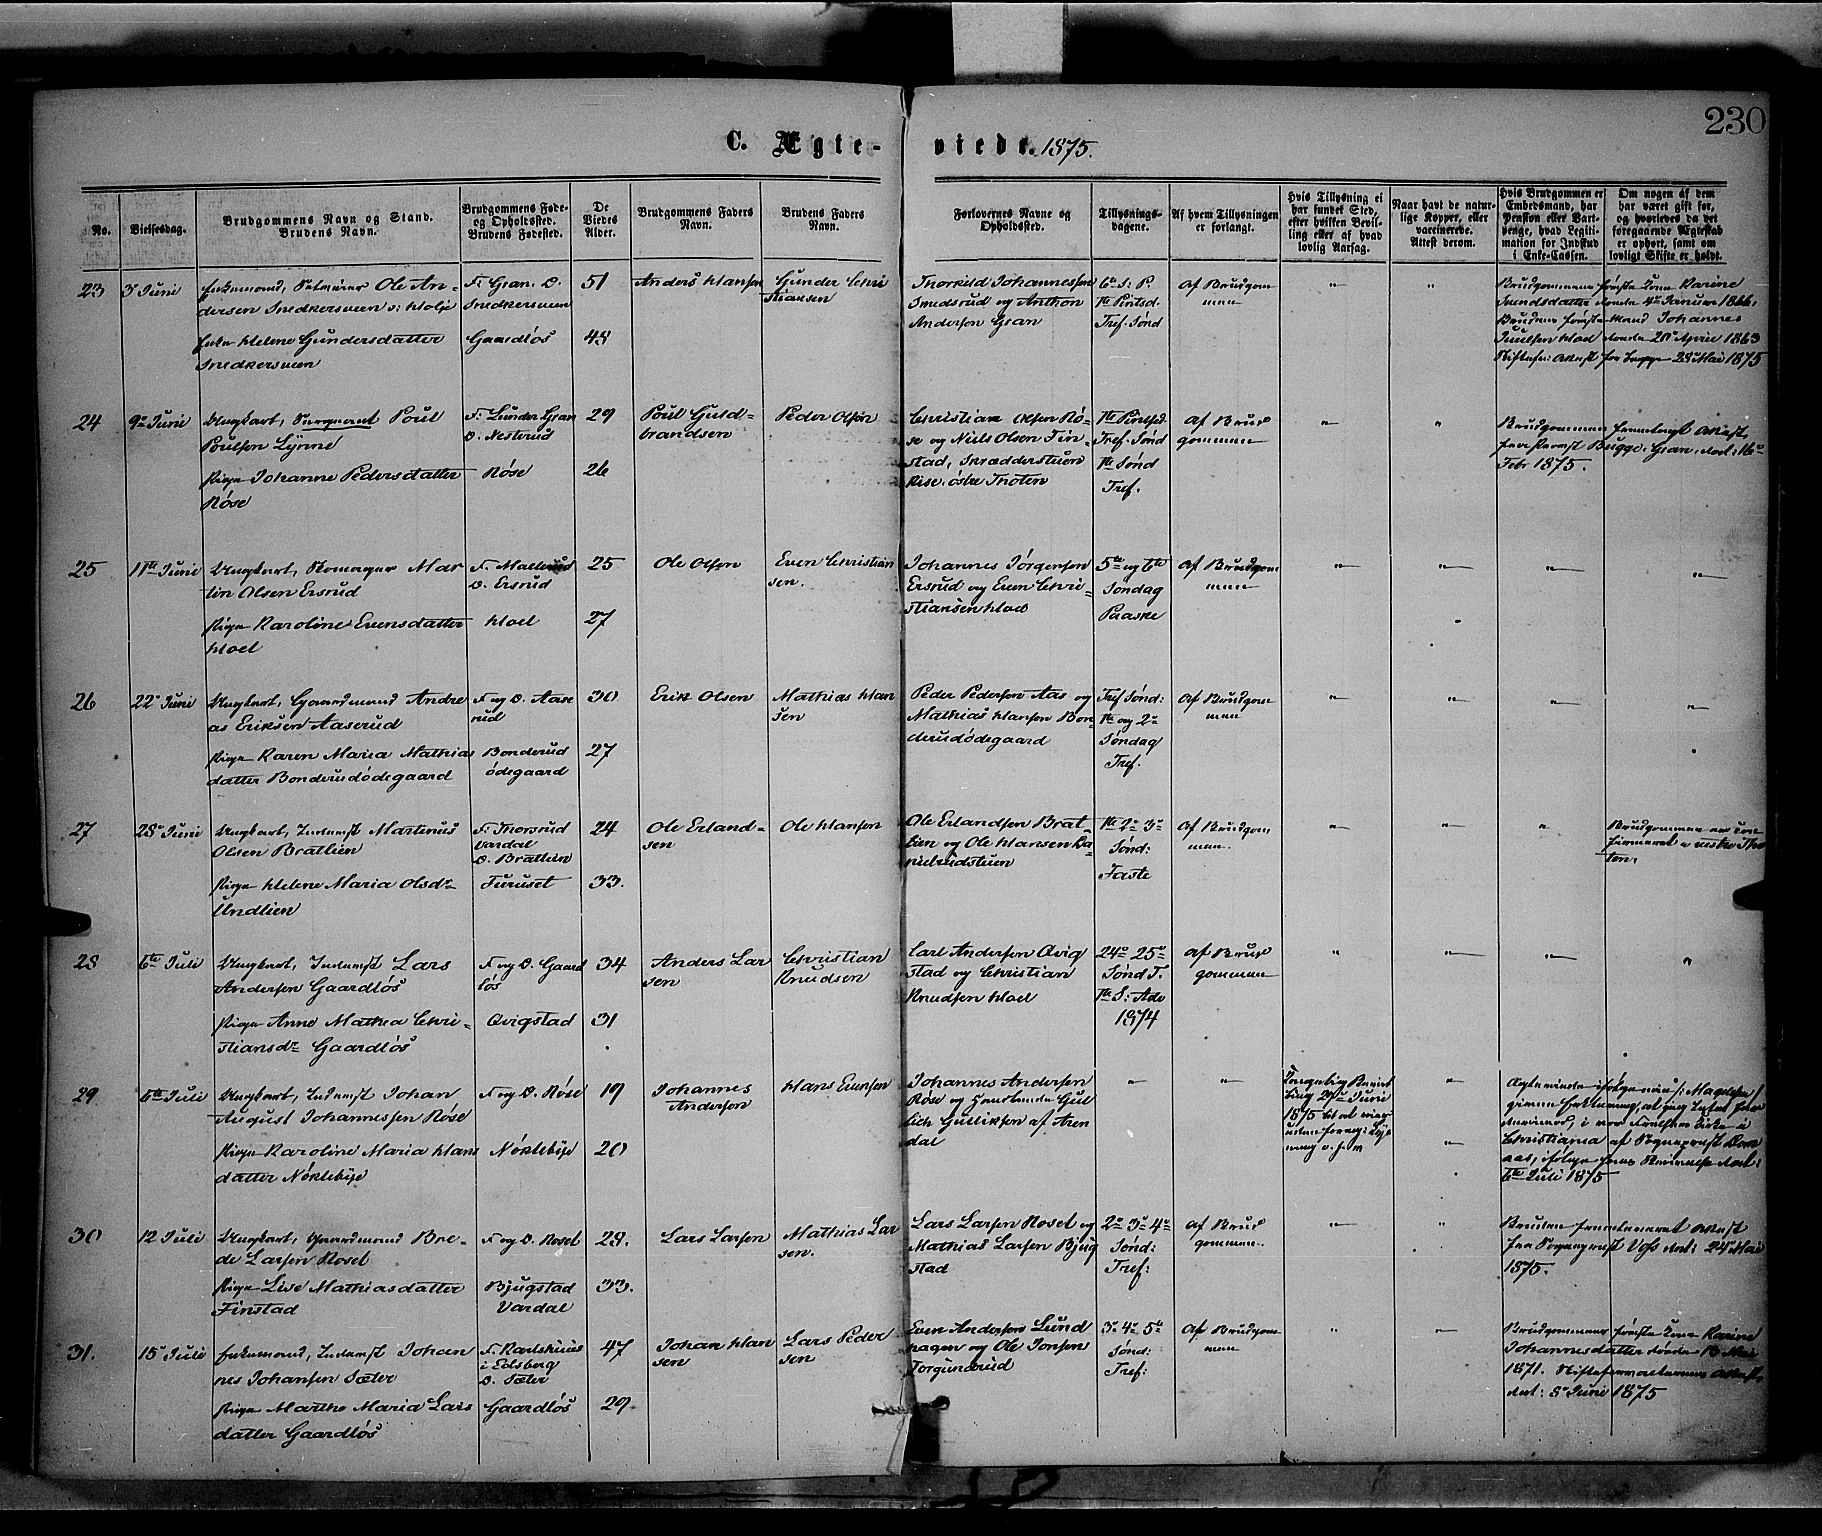 230
C. Ægte- viede. 1875.
No.
Vielsesdag.
Brudgommens Navn og Stand.
Brudens Navn.
Brudgommens Føde-
og Opholdssted.
Brudens Fødested.
De
Viedes
Alder.
Brudgommens Faders
Navn.
Brudens Faders
Navn.
Forlovernes Navne og
Opholdssted.
Tillysnings-
dagene.
Af hvem Tillysningen
er forlangt.
Hvis Tillysning ei
har fundet Sted,
efter hvilken Bevil-
ling eller af hvad
lovlig Aarsag.
Naar havt de natur-
lige Kopper, eller
vaccinerede.
Attest derom.
Hvis Brudgommen er
Embedsmand, har
Pension eller Vart-
penge, hvad Legiti-
mation for Indskud
i Enke-Cassen.
Om nogen af dem
har været gift før,
og hvorledes da det
foregaaende Ægteskab
er ophørt, samt om
lovligt Skifte er holdt.
23
3 Juni
Enkemand, Ole An-
dersen Snedkersveen
Enke Helene Gundersdatter
Snedkersveen
F. Gran. O.
Snedkersveen
Gaardløs
51
48
Anders Hansen
Gunder Chri
stiansen
Thorkild Johannessen
Smedsrud og Anthon
Andersen Gran
6te S: P.
1te Pintsd.
Tref. Sønd
Af Brudgom
men
Brudgommens første Kone Karine
døde 4de Januar 1866.
Brudens første Mand Johannes
Hoel døde 20de April 1863
28 Mai 1875
24
9de Juni
Ungkarl, Sergeant Poul
Poulsen Lynne
Pige Johanne Pedersdatter
Røse
F. Lunder Gran
O. Nesterud
Røse
29
26
Poul Guld-
brandsen
Peder Olsen
Christian Olsen Rø-
se og Niels Olsen Fin-
stad, Skrædderstuen
østre Thoten
1te Pintsd.
Tref. Sønd
1te Sønd
Tref.
Af Brud
gommen
Brudgommen fremlagt Attest
fra Provst Bugge, Gran, dat: 16de
Febr 1875.
25
11te Juni
Ungkarl, Skomager Mar
tin Olsen Ersrud
Pige Karoline Evensdatter
Hoel
F. Mallerud
O. Ersrud
Hoel
25
27
Ole Olsen
Even Christian
sen.
Johannes Jørgensen
Ersrud og Even Chri-
stiansen Hoel
5te og 6te
Søndag
Paaske
Af Brudgom
men
26
22de Juni
Ungkarl, Gaardmand Andre
as Eriksen Aaserud
Pige Karen Maria Mathias
datter Bonderudødegaard
F. og O. Aase
rud
Bonderud
ødegaard
30
27
Erik Olsen
Mathias Han
sen
Peder Pedersen Aas og
Mathias Hansen Bon
derudødegaard
Tref Sønd:
1te og 2de
Søndag
Tref.
Af Brudgom
men
27
28de Juni
Ungkarl, Inderst Martinus
Olsen Bratlien
Pige Helene Maria Olsdr
Undlien
F. Thorsrud
Vardal
O. Bratlien
Furuset
24
33.
Ole Erland-
sen
Ole Hansen
Ole Erlandsen Brat-
lien og Ole Hansen
1te 2de 3de
Sønd:
Faste
Af Brudgom
men.
Brudgommen er con
firmeret i vestre Tho
ten.
28
6te Juli
Ungkarl, Inderst Lars
Andersen Gaardløs
Pige Anne Mathea Chri-
stiansdr Gaardløs
F. og O. Gaard
løs
Qvigstad
34
31
Anders Lar
sen
Christian
Knudsen
Carl Andersen Qvig
stad og Christian
Knudsen Hoel
24de 25de
Sønd T.
1te S: Adv
1874
Af Brud
gommen
29
6te Juli
Ungkarl, Inderst Johan
August Johannessen Røse
Pige Karoline Maria Hans
datter Nøklebye
F. og O. Røse
Nøklebye
19
20
Johannes
Andersen
Hans Evensen
Johannes Andersen
Røse og Gul
lich Gulliksen af Aren
dal
Kongelig Bevil
ling 29de Juni
1875
Christiania af Sognepræst
6te Juli 1875
30
12 Juli
Ungkarl, Gaardmand Bre-
de Larsen Roset
Pige Lise Mathiasdatter
Finstad
F. og O. Roset
Bjugstad
Vardal
28.
33.
Lars Larsen
Mathias Lar
sen.
Lars Larsen Roset og
Mathias Larsen Bjug
stad
2de 3de 4de
Sønd:
Tref:
Af Brud
gommen.
Bruden fremleveret Attest
fra Sognepræst Voss dat: 24de Mai
1875.
31.
15de Juli
Enkemand, Inderst Johan
nes Johansen Sæter
Pige Marthe Maria Lars
datter Gaardløs
F. Karlshuus
i Edsberg
O. Sæter
Gaardløs
47
29
Johan Han
sen
Lars Peder
sen
Even Andersen Lund
hagen og Ole Jonsen
Torgundrud
3de 4de 5te
Sønd:
Tref:
Af Brudgom
men
Brudgommens første Kone Karine
Johannesdatter døde 13 Mai
1871.
dat: 8de Juni 1875